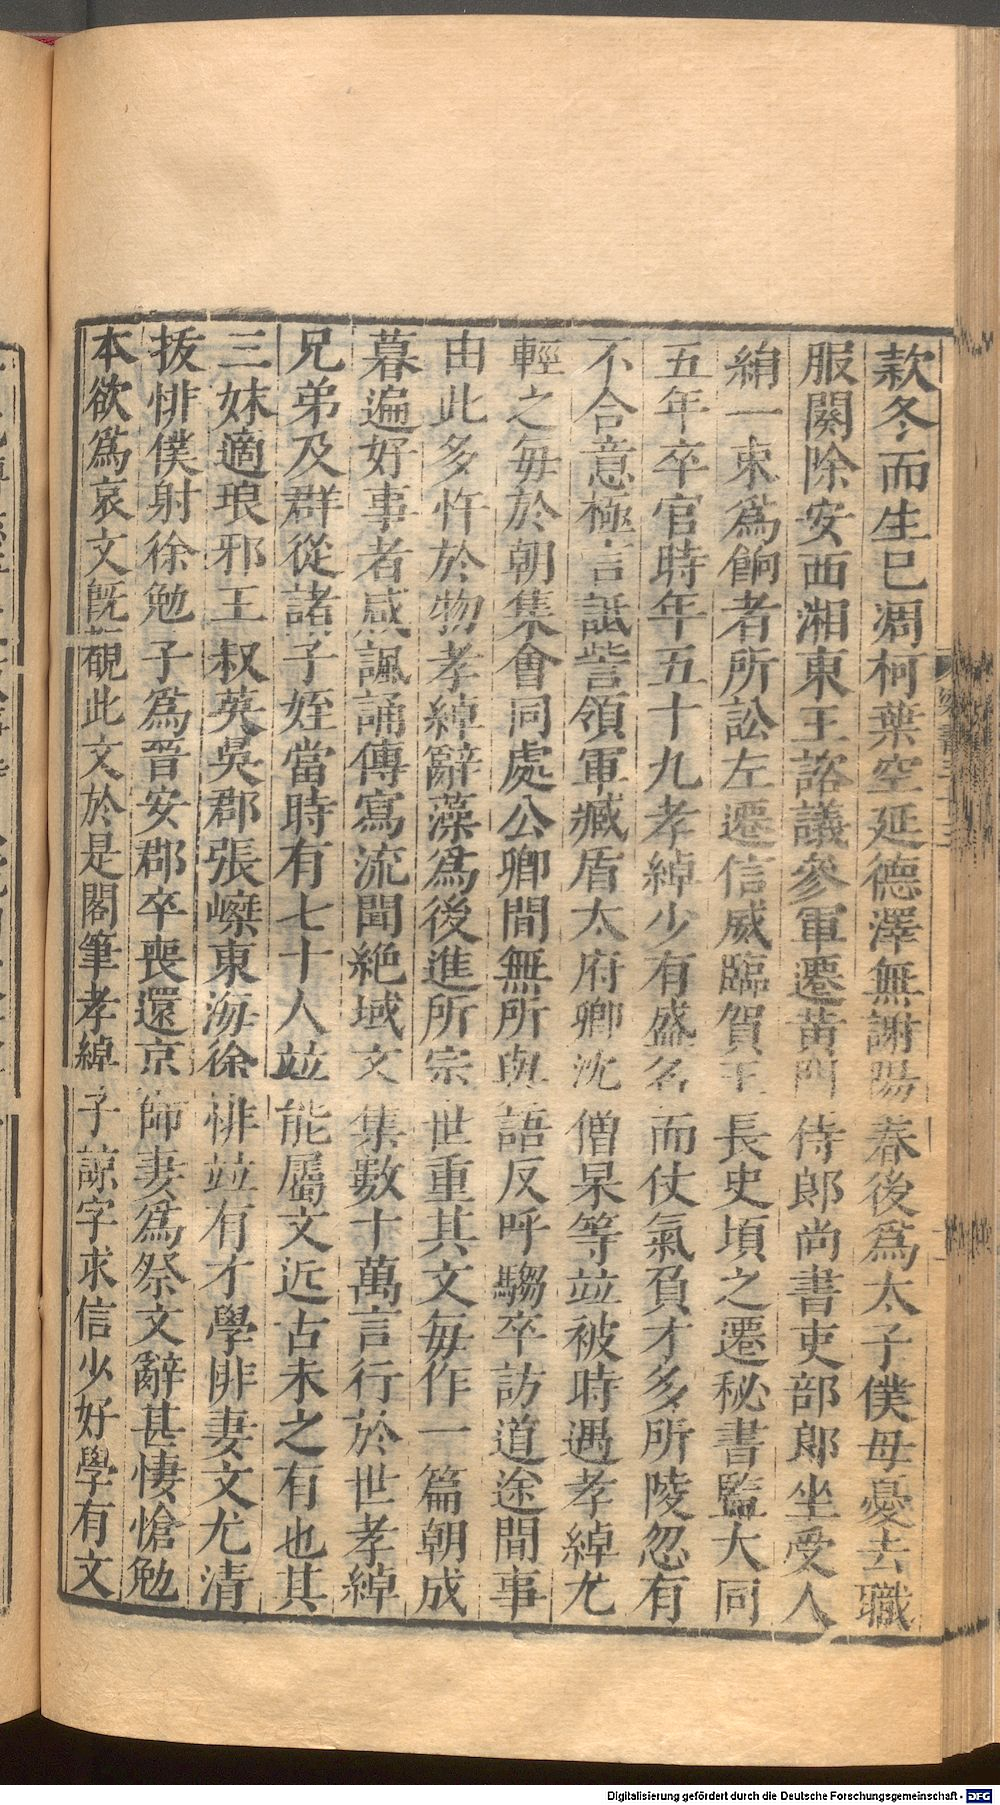 款冬而生已凋柯葉空延德澤無謝陽春後爲太子僕母憂去職
服闋除安西湘東王諮議參軍遷黄門侍郎尚書吏部郎坐受人
絹一束爲餉者所訟左遷信威臨賀王長史頃之遷秘書監大同
五年卒官時年五十九孝綽少有盛名而仗氣負才多所陵忽有
不合意極言詆訾領軍臧盾太府卿沈僧杲等竝被時遇孝綽尤
輕之每於朝集會同處公卿間無所與語反呼騶卒訪道途間事
由此多忤於物孝綽辭藻爲後進所宗世重其文每作一篇朝成
暮遍好事者咸諷誦傳寫流聞絶域文集數十萬言行於世孝綽
兄弟及群從諸子姪當時有七十人竝能屬文近古未之有也其
三妹適琅邪王叔英吳郡張嵊東海徐悱竝有才學悱妻文尤清
拔悱僕射徐勉子爲晉安郡卒喪還京師妻爲祭文辭甚悽愴勉
本欲爲哀文既覩此文於是閣筆孝綽子諒字求信少好學有文
Digitalisierung gefördert durch die Deutsche Forschungsgemeinschaft - DFG